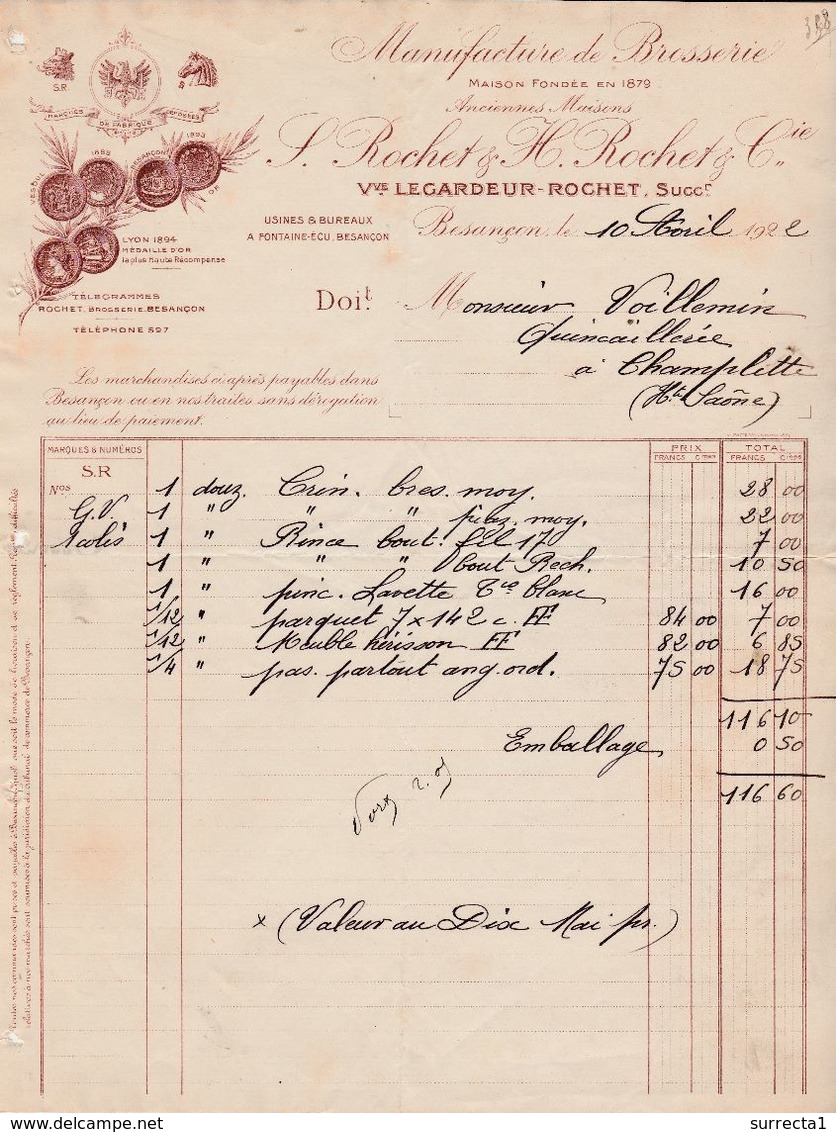 388
Manufacture de Brosserie
MAISON FONDÉE EN 1879
Anciennes Maisons
S. Rochet & H. Rochet & Cie
Vve LEGARDEUR-ROCHET, Succr
S.R
S
MARQUES
DÉPOSÉES
DE FABRIQUE
VESOUL
1888
BESANÇON
1893
OR
LYON 1894
MÉDAILLE D'OR
la plus Haute Récompense
TÉLÉGRAMMES
ROCHET, BROSSERIE, BESANÇON
TÉLÉPHONE 597
USINES & BUREAUX
A FONTAINE-ÉCU, BESANÇON
Besançon, le 10 Avril 1922
Doit
Monsieur Voillemin
Quincaillerie
à Champlitte
(Hte Saône)
Les marchandises ci après payables dans
Besançon ou en nos traites sans dérogation
au lieu de paiement.
MARQUES & NUMÉROS
PRIX
TOTAL
FRANCS
Cmes
FRANCS
Cmes
S.R
Nos
1 douz. Crin. bres. moy. 28 00
G.V. 1 " " " piaz. moy. 22 00
1 colis 1 " Rince bout. fil 170 7 00
1 " " " bout Rech. 10 50
1 " pinc. Lavette Tte blanc 16 00
1/12 " parquet 7 x 142 c. FF 84 00 7 00
1/12 " Meuble hérisson FF 82 00 6 85
1/4 " pas. partout ang. ord. 75 00 18 75
116 10
Emballage 0 50
116 60
x (Valeur au Dix Mai pr.)
surrecta1